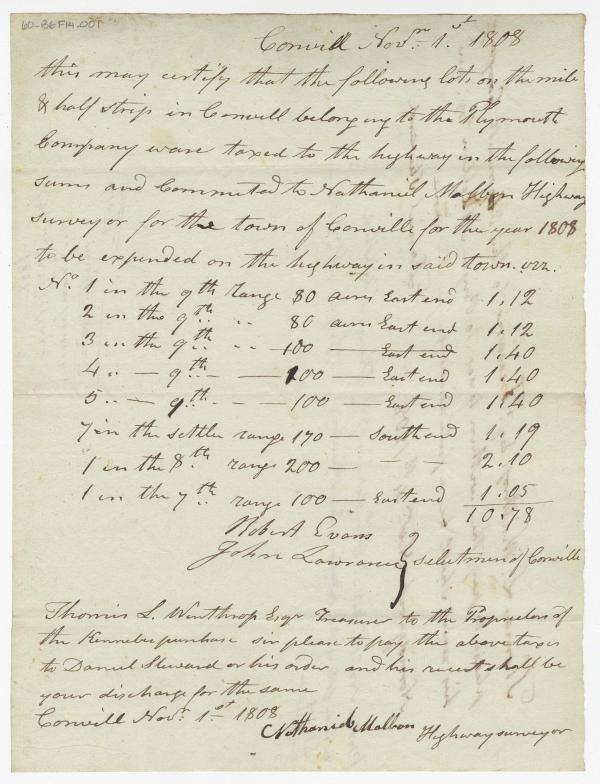 60-B6F14-001
Convill Novr. 1st. 1808
this may certify that the following lots on the mile
& half strip in Convill belonging to the Plymouth
Company ware taxed to the highway in the following
sums and Commited to Nathaniel Malbon Highway
surveyor for the town of Conville for the year 1808
to be expended on the highway in said town. viz.
No. 1 in the 9th range 80 acres East end 1.12
2 in the 9th .. 80 acres East end 1.12
3 in the 9th .. .. 100 — East end 1.40
4 .. — 9th — — 100 — East end 1.40
5 .. — 9th — — 100 — East end 1.40
7 in the settler range 170 — South end 1.19
1 in the 8th range 200 — — — 2.10
1 in the 7th range 100 — East end 1.05
10.78
Robert Evans
John Lawrance } selectmen of Conville
Thomas L. Winthrop Esqr Treasurer to the Proprietors of
the Kennebec purchase sir please to pay the above taxes
to Daniel Steward or his order and his receit shall be
your discharge for the same
Convill Novr. 1st 1808
Nathaniel Malbon Highway surveyor